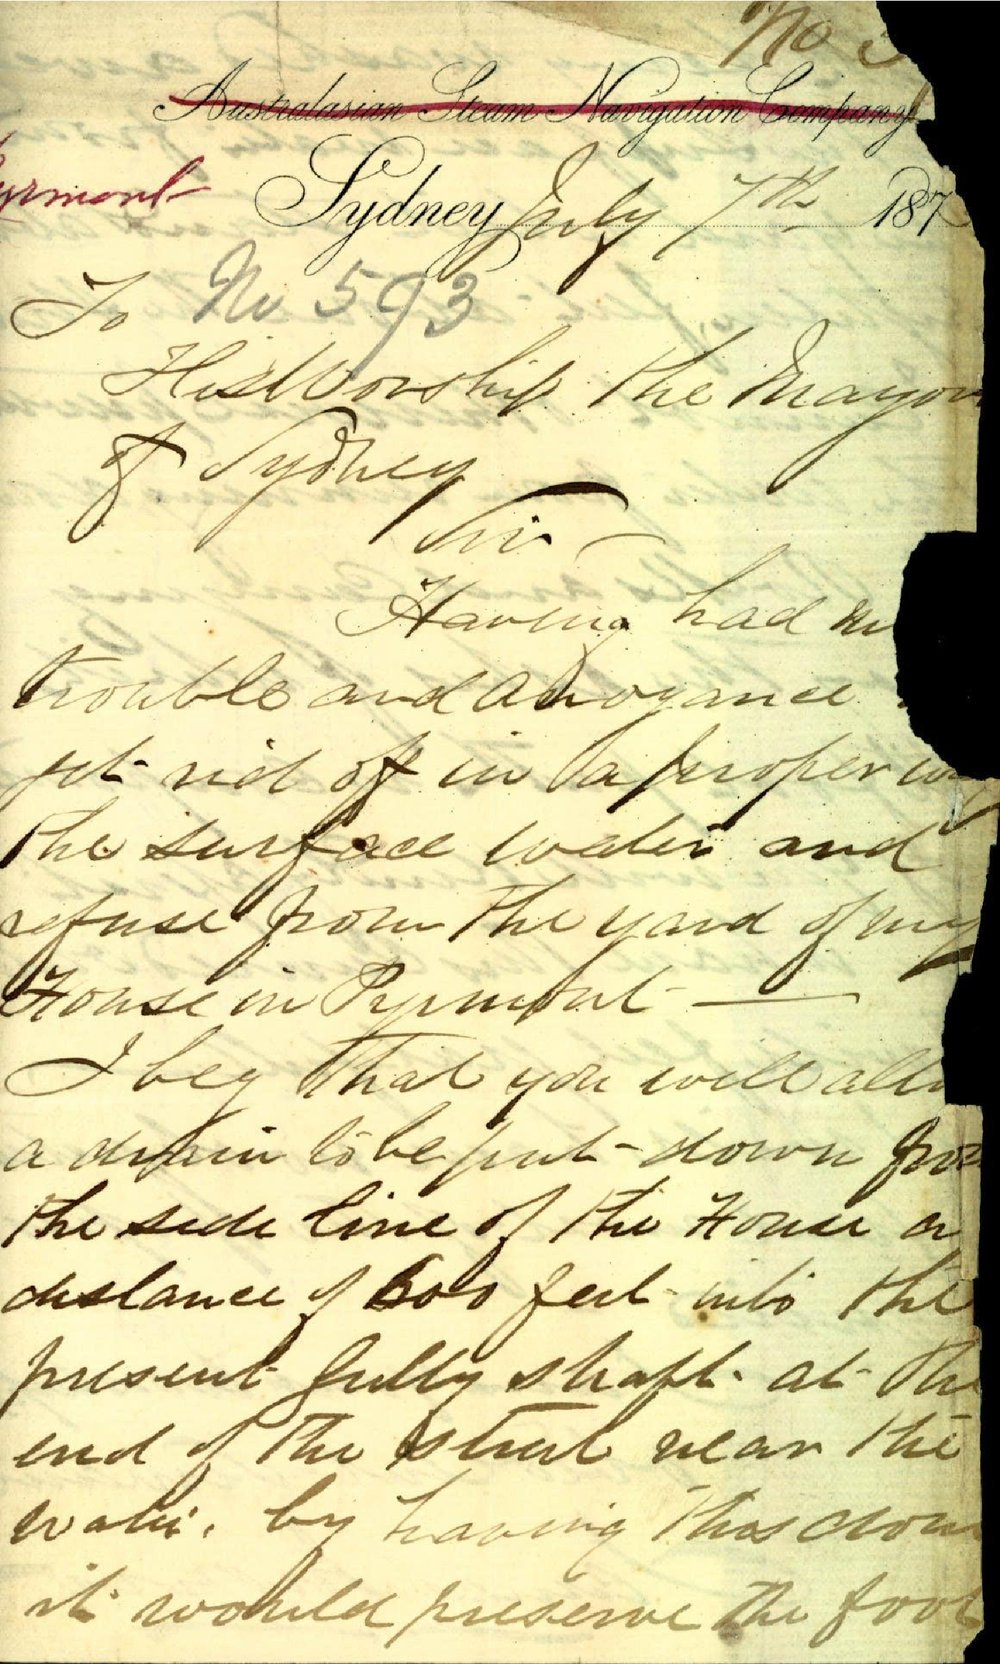 No
Australasian Steam Navigation Company
Pyrmont
Sydney July 7th 187
To No 593
His Worship the Mayor
of Sydney
Sir
Having had
trouble and annoyance
get rid of in a proper way
the surface water and
refuse from the yard of my
House in Pyrmont —
I beg that you will allo
a drain to be put down from
the side line of the House a
distance of 600 feet into the
present gully shaft at the
end of the street near the
water. by having this done
it would preserve the foot